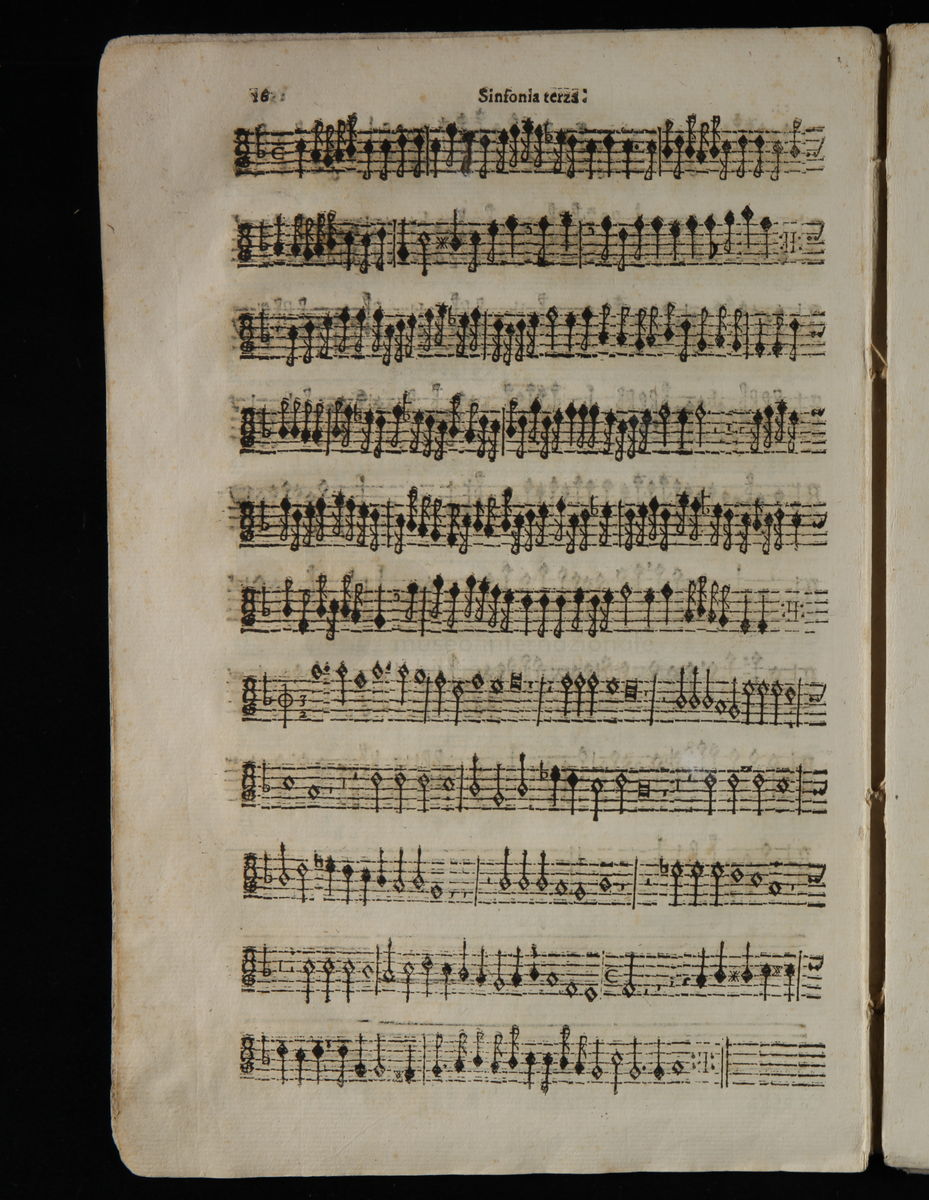 16
Sinfonia terza:
3
2